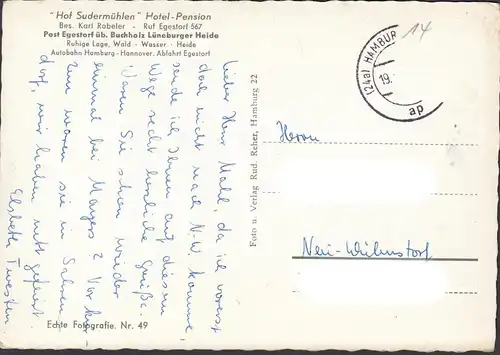 "Hof Sudermühlen" Hotel-Pension
Bes. Karl Rabeler - Ruf Egestorf 567
Post Egestorf üb. Buchholz Lüneburger Heide
Ruhige Lage, Wald - Wasser - Heide
Autobahn Hamburg-Hannover, Abfahrt Egestorf
Lieber Herr Mahl, da ich vorerst
doch nicht nach N.-W. komme,
sende ich Ihnen auf diesem
Wege recht herzliche Grüße.
Waren Sie schon wieder
einmal bei Meyers? Vor kur-
zem waren sie in Sahren
dorf, wir haben mitgefeiert.
Elsbeth Twesten
Echte Fotografie. Nr. 49
Foto u. Verlag Rud. Reher, Hamburg 22
(24a) HAMBUR
19.
ap
14
Herrn
Neu-Wulmstorf